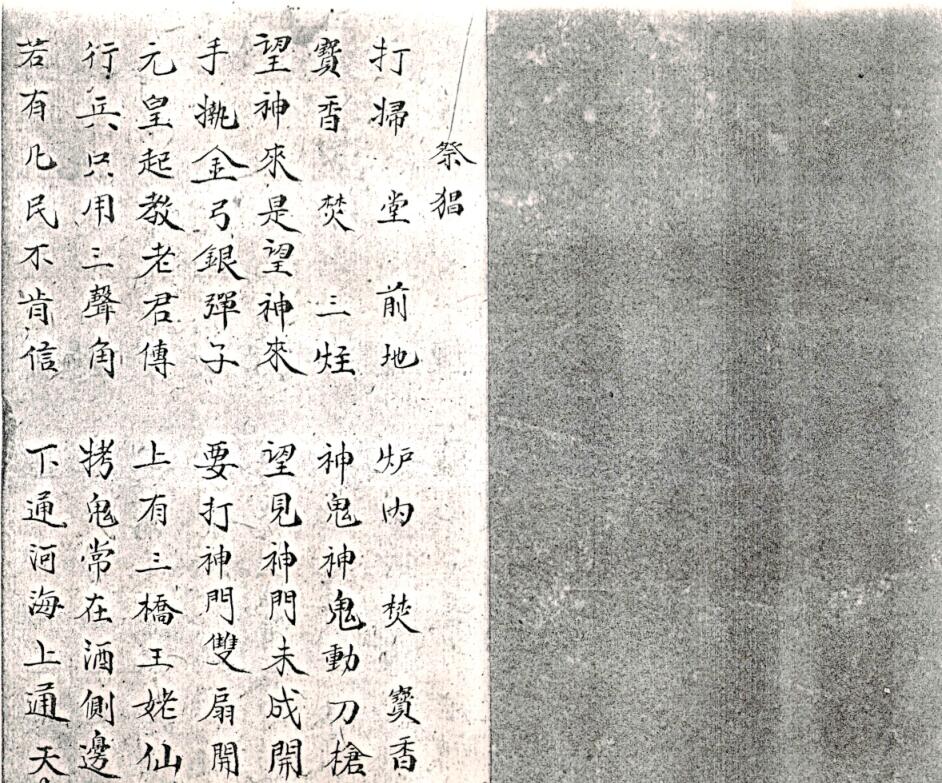 祭猖
打掃堂前地 炉内焚寳香
寳香焚三炷 神鬼神鬼動刀槍
望神來是望神來 望見神門未成開
手執金弓銀彈子 要打神門雙扇開
元皇起教老君傳 上有三橋王姥仙
行兵只用三聲角 拷鬼常在酒側邊
若有凢民不肯信 下通河海上通天